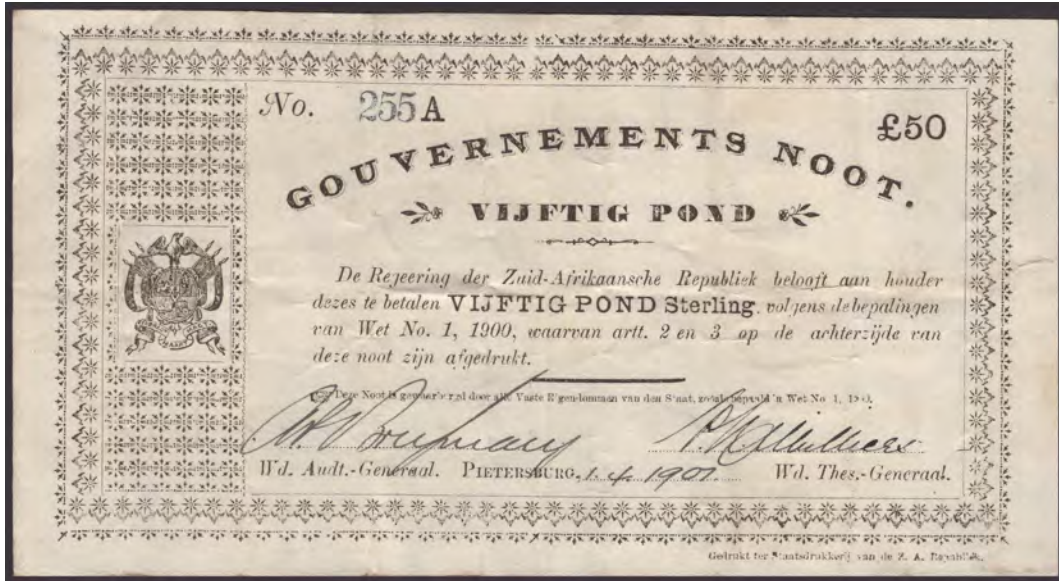 No. 255 A
£50
GOUVERNEMENTS NOOT.
VIJFTIG POND
De Regeering der Zuid-Afrikaansche Republiek belooft aan houder
dezes te betalen VIJFTIG POND Sterling, volgens de bepalingen
van Wet No. 1, 1900, waarvan artt. 2 en 3 op de achterzijde van
deze noot zijn afgedrukt.
Deze Noot is gewaarborgd door alle Vaste Eigendommen van den Staat, zooals bepaald in Wet No 1, 1900.
Wd. Audt.-Generaal. PIETERSBURG, 1.4.1901. Wd. Thes.-Generaal.
Gedrukt ter Staatsdrukkerij van de Z. A. Republiek.